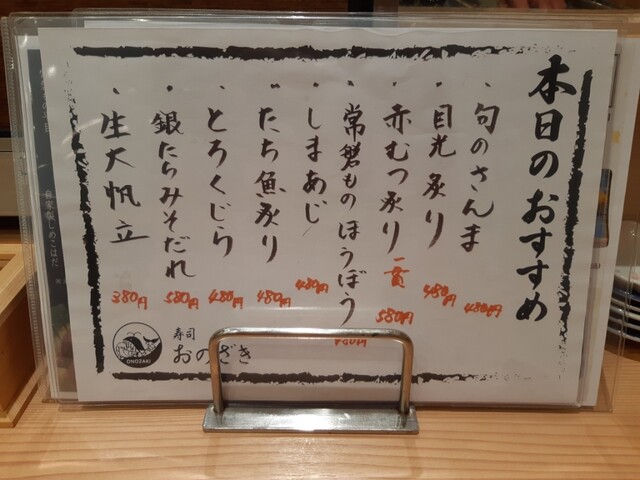 本日のおすすめ
旬のさんま
480円
目光炙り
480円
赤むつ炙り 一貫
580円
常磐ものほうぼう
しまあじ
480円
たち魚炙り
480円
とろくじら
480円
銀たらみそだれ
580円
生大帆立
380円
寿司
おのざき
ONOZAKI
自家製しめこはだ